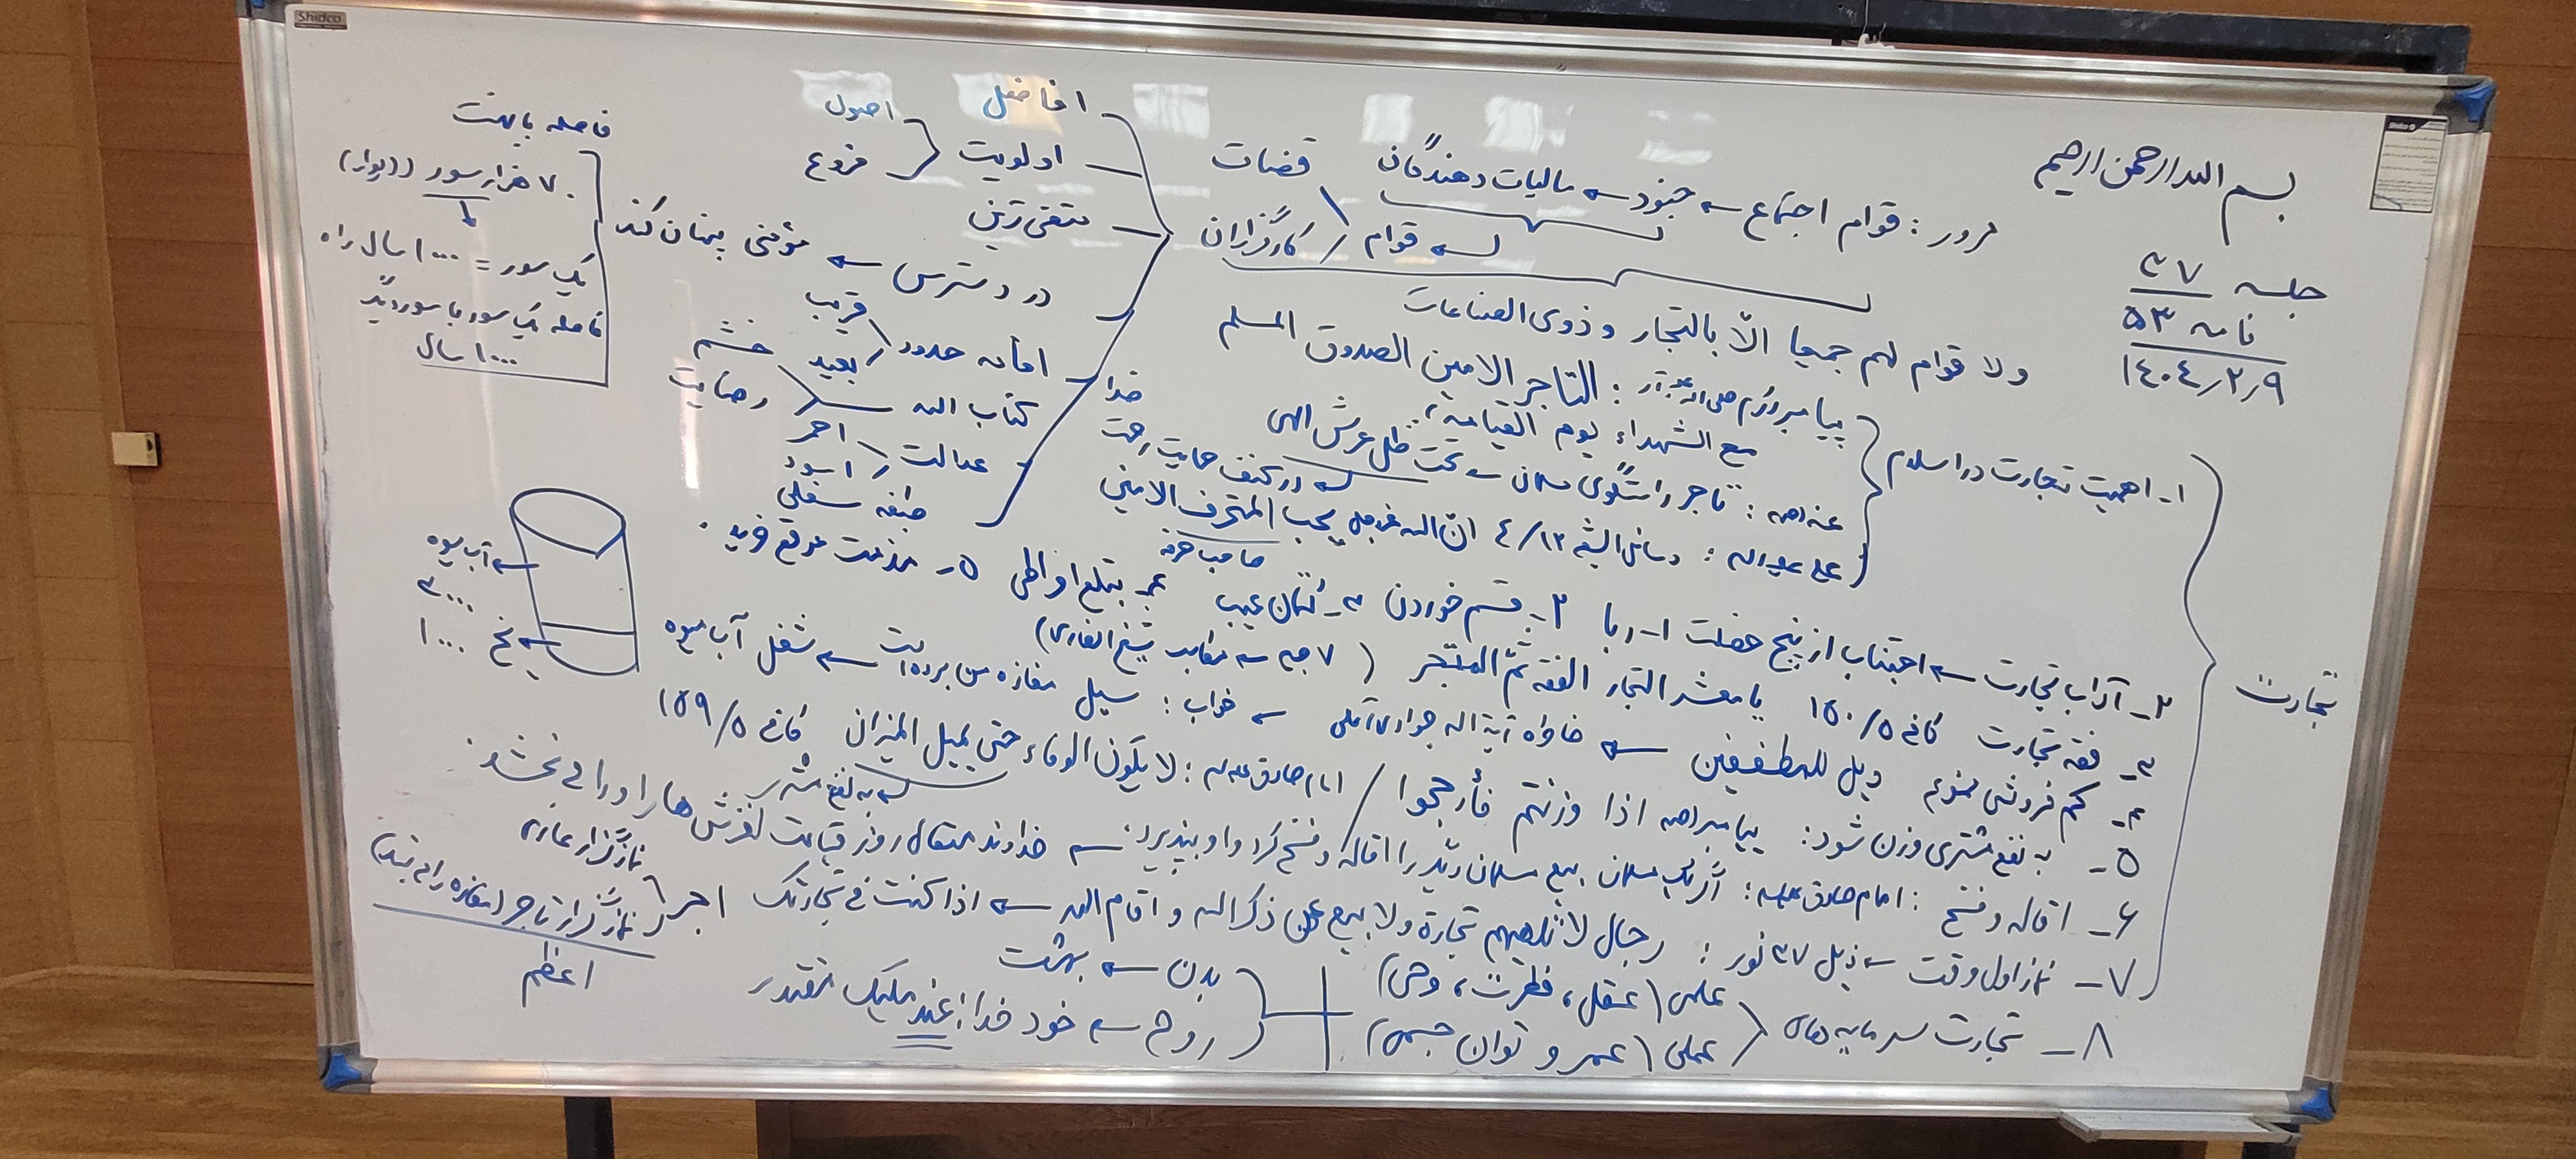 Shidco
بسم الله الرحمن الرحیم
جلسه ۳۷
نامه ۵۳
۱۴۰۴/۲/۹
مرور: قوام اجتماع ← جنود ← مالیات دهندگان
قوام / کارگزاران \ قضات
افاضل
اولویت } اصول
فروع
متقی ترین
در دسترس ← مؤمنی پنهان کند
فاصله با بهشت
۷۰ هزار سور (دیوار)
یک سور = ۱۰۰۰ سال راه
فاصله یک سور با سور دیگر
۱۰۰۰ سال
خدا
اقامه حدود / قریب
بعید
کتاب الله خشم
رضایت
عدالت احمر
اسود
طبقه سفلی
ولا قوام لهم جمیعا الّا بالتجار و ذوی الصناعات
تجارت
۱- اهمیت تجارت در اسلام
پیامبر اکرم صلی الله علیه و آله: التاجر الامین الصدوق المسلم
مع الشهداء یوم القیامة
عنه : تاجر راستگوی مسلمان ← تحت ظل عرش الهی
← در کنف حمایت رحمت
علی علیه السلام: وسائل الشیعه ۴/۱۲ انّ الله عزوجل یحب المحترف الامین
صاحب حرفه
۲- آداب تجارت ← اجتناب از پنج خصلت ۱- ربا ۲- قسم خوردن ۳- کتمان عیب ۵- مذمت موقع خرید.
۳- فقه تجارت کافی ۱۵۰/۵ یا معشر التجار الفقه ثمّ المتجر
۴- کم فروشی ممنوع ویل للمطففین ← خاطره آیة الله جوادی آملی ← خواب: سیل مغازه من برده است ← شغل آب میوه
آب میوه
۳۰۰۰
یخ ۱۰۰۰
۵- به نفع مشتری وزن شود: پیامبر اذا وزنتم فأرجحوا / امام صادق : لا یکون الوفاء حتی یمیل المیزان کافی ۱۵۹/۵
← به نفع مشتری
۶- اقاله و فسخ: امام صادق : اگر یک مسلمان بیع مسلمان دیگر را اقاله و فسخ کرد و او بپذیرد ← خداوند متعال روز قیامت لغزش ها را او را می بخشد.
۷- نماز اول وقت ← ذیل ۳۷ نور: رجال لا تلهیهم تجارة ولا بیع عن ذکر الله و اقام الصلاة ← اذا کنت فی تجارتک
اجر نمازگزار عادی
نمازگزار تاجر (مغازه را می بندد)
اعظم
۸- تجارت سرمایه های علمی (عقل، فطرت، وحی)
عملی (عمر و توان جسمی)
بدن ← بهشت
روح ← خود خدا: عند ملیک مقتدر